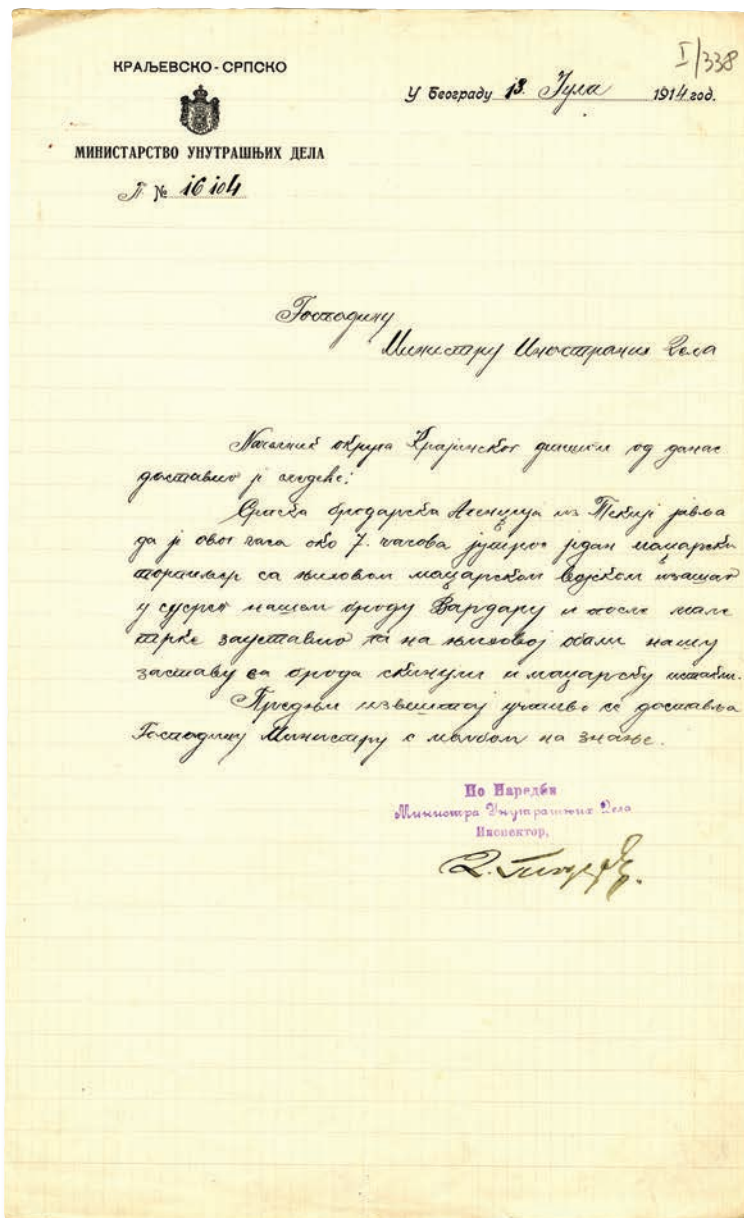 I/338
КРАЉЕВСКО-СРПСКО
У Београду 13. Јула 1914 год.
МИНИСТАРСТВО УНУТРАШЊИХ ДЕЛА
П. № 16104
Господину
Министру Иностраних Дела
Начелник округа Крајинског депешом од данас
доставио је следеће:
Српска бродарска Агенција из Текије јавља
да је овог часа око 7. часова јутрос један мађарски
са њиховом мађарском војском изашао
у сусрет нашем броду Вардару и после мале
трке зауставио га на њиховој обали нашу
заставу са брода скинули и мађарску истакли.
Предњи извештај учтиво се доставља
Господину Министру с молбом на знање.
По Наредби
Министра Унутрашњих Дела
Инспектор,